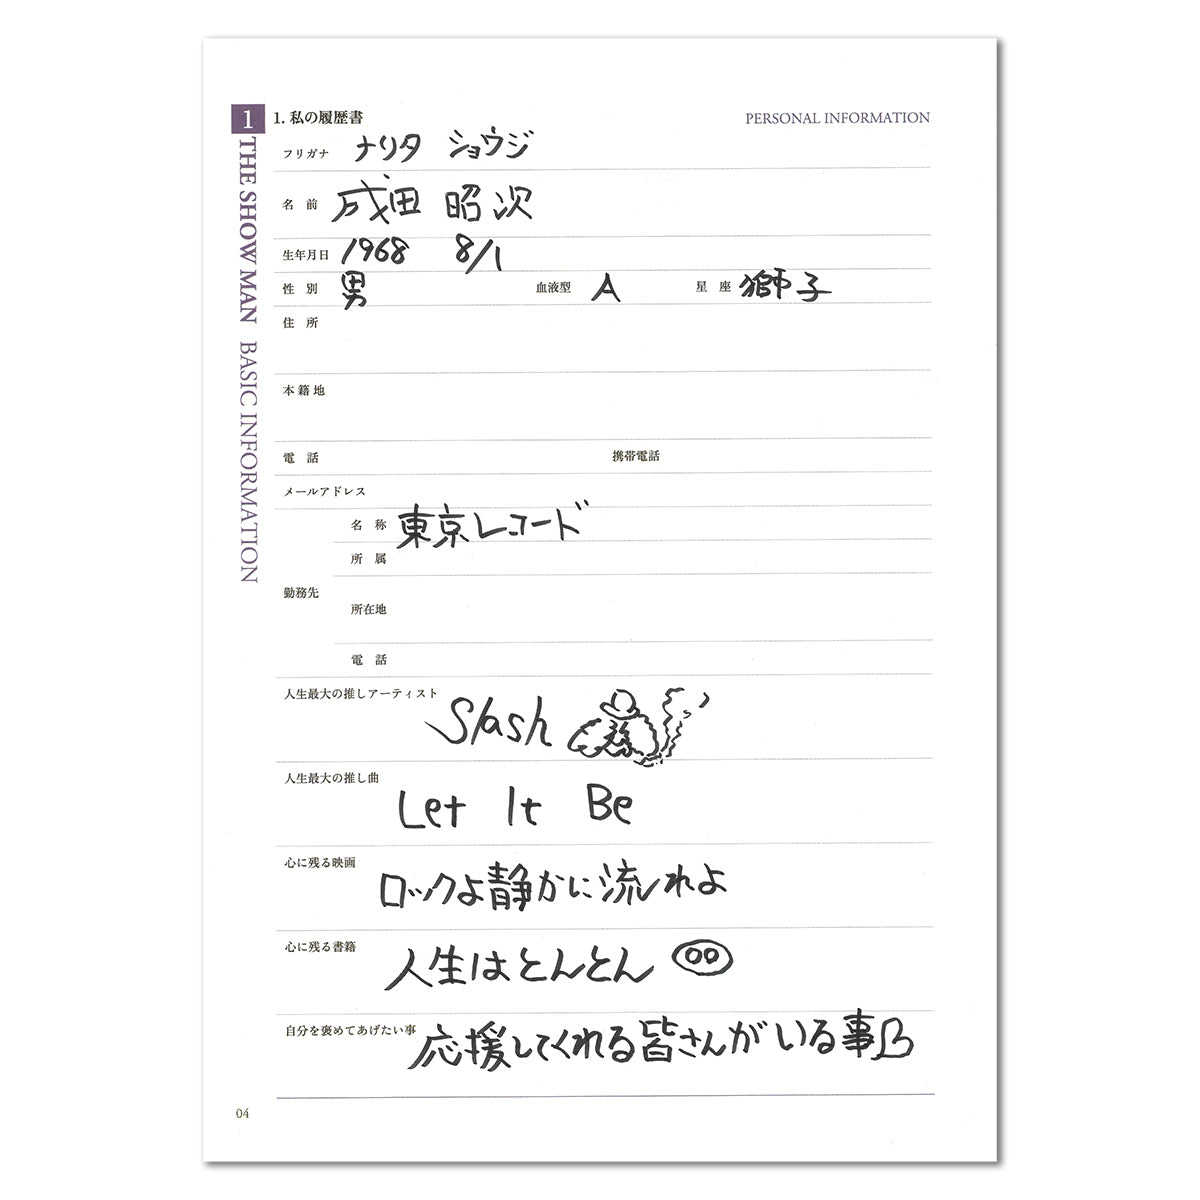 1
1. 私の履歴書
PERSONAL INFORMATION
THE SHOW MAN BASIC INFORMATION
フリガナ ナリタ ショウジ
名前 成田 昭次
生年月日 1968 8/1
性別 男 血液型 A 星座 獅子
住所
本籍地
電話 携帯電話
メールアドレス
名称 東京レコード
所属
勤務先
所在地
電話
人生最大の推しアーティスト Slash
人生最大の推し曲 Let It Be
心に残る映画 ロックよ静かに流れよ
心に残る書籍 人生はとんとん
自分を褒めてあげたい事 応援してくれる皆さんがいる事
04